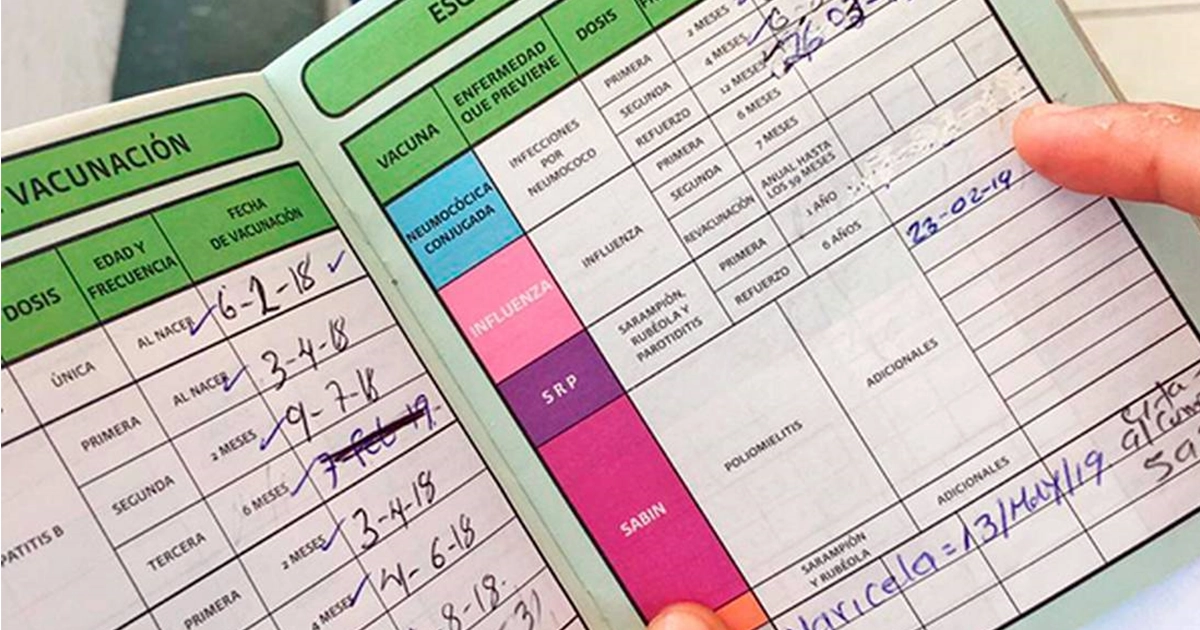 VACUNACIÓN
DOSIS
EDAD Y
FRECUENCIA
FECHA
DE VACUNACIÓN
ÚNICA
AL NACER
6-2-18
PRIMERA
AL NACER
3-4-18
SEGUNDA
2 MESES
9-7-18
TERCERA
6 MESES
7-Feb-19.
PATITIS B
PRIMERA
2 MESES
3-4-18
4 MESES
4-6-18
8-18-
VACUNA
ENFERMEDAD
QUE PREVIENE
DOSIS
NEUMOCÓCICA
CONJUGADA
INFECCIONES
POR
NEUMOCOCO
PRIMERA
2 MESES
SEGUNDA
4 MESES
REFUERZO
12 MESES
26-03-
INFLUENZA
INFLUENZA
PRIMERA
6 MESES
SEGUNDA
7 MESES
REVACUNACIÓN
ANUAL HASTA
LOS 59 MESES
S R P
SARAMPIÓN,
RUBÉOLA Y
PAROTIDITIS
PRIMERA
1 AÑO
REFUERZO
6 AÑOS
23-02-19
SABIN
POLIOMIELITIS
ADICIONALES
SARAMPIÓN
Y RUBÉOLA
ADICIONALES
Varicela = 13/May/19